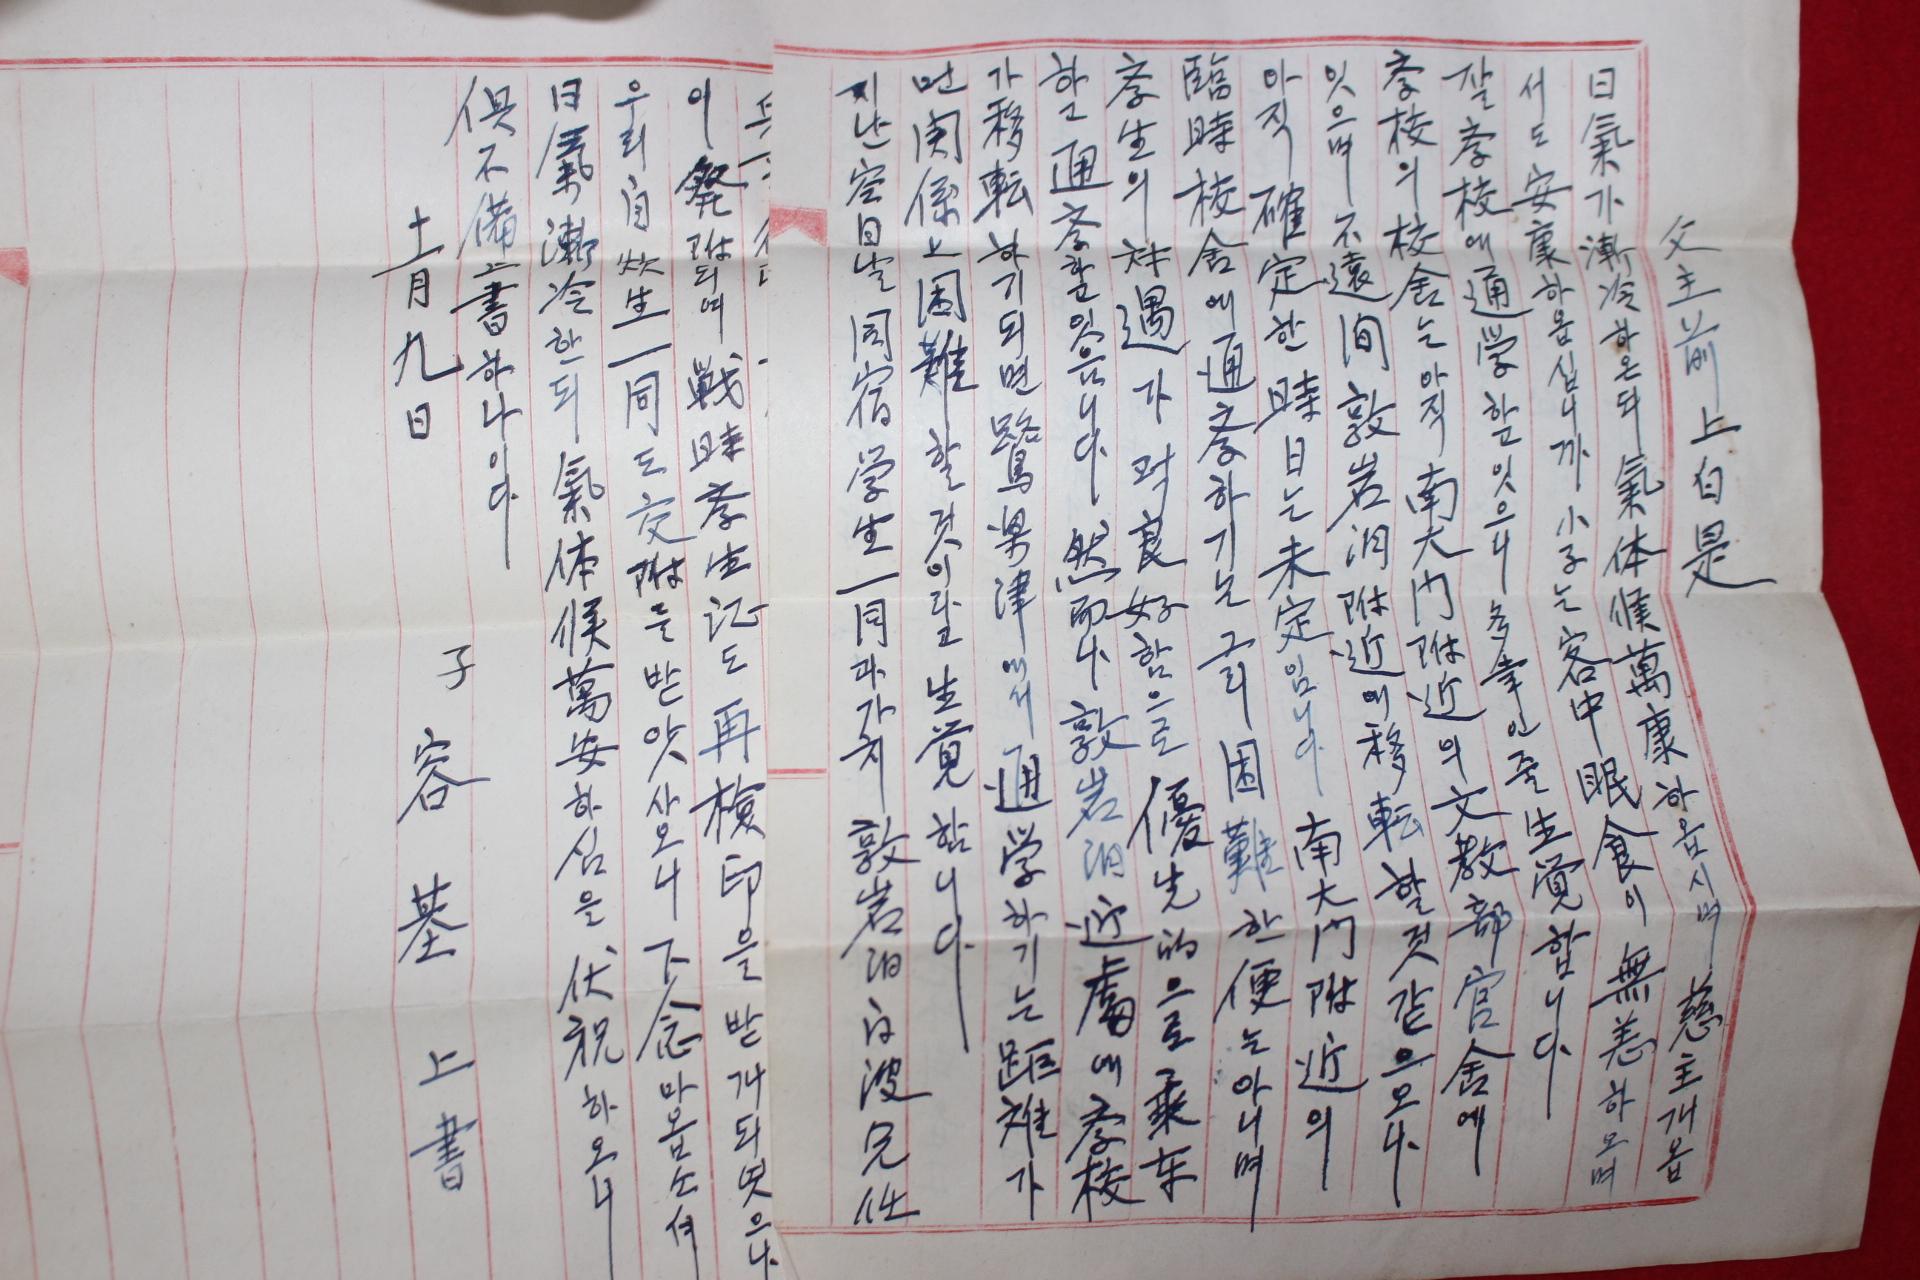 父主前 上白是
日氣가 漸冷하온되 氣体候萬康하옵시며 慈主개옵
서도 安康하옵심니까 小子는 客中眠食이 無恙하오며
잘 孝校에 通学할고 잇으니 多幸인줄 生覚합니다
孝校의 校舍는 아직 南大门附近의 文教部官舍에
잇으며 不遠间 敦岩洞附近에 移転할것같으오나
아직 確定한 時日는 未定임니다 南大门附近의
臨時校舍에 通孝하기는 그리 困難한 便는 아니며
孝生의 待遇가 对良好함으로 優先的으로 乘车
하고 通孝할고 잇음니다 然而나 敦岩洞近處에 孝校
가 移転하기되면 鷺梁津에서 通学하기는 距離가
먼 関係上 困難할것이라고 生覚함니다
지난 空日날 同宿学生一同과 가치 敦岩洞
이 発附되며 戦時孝生証도 再検印을 받개되엿으나
우리 自炊生一同도 交附을 받앗사오니 下念마옵소셔
日氣漸冷한되 氣体候萬安하심을 伏祝하오니
俱不備上書하나이다
十一月九日
子 容基 上書